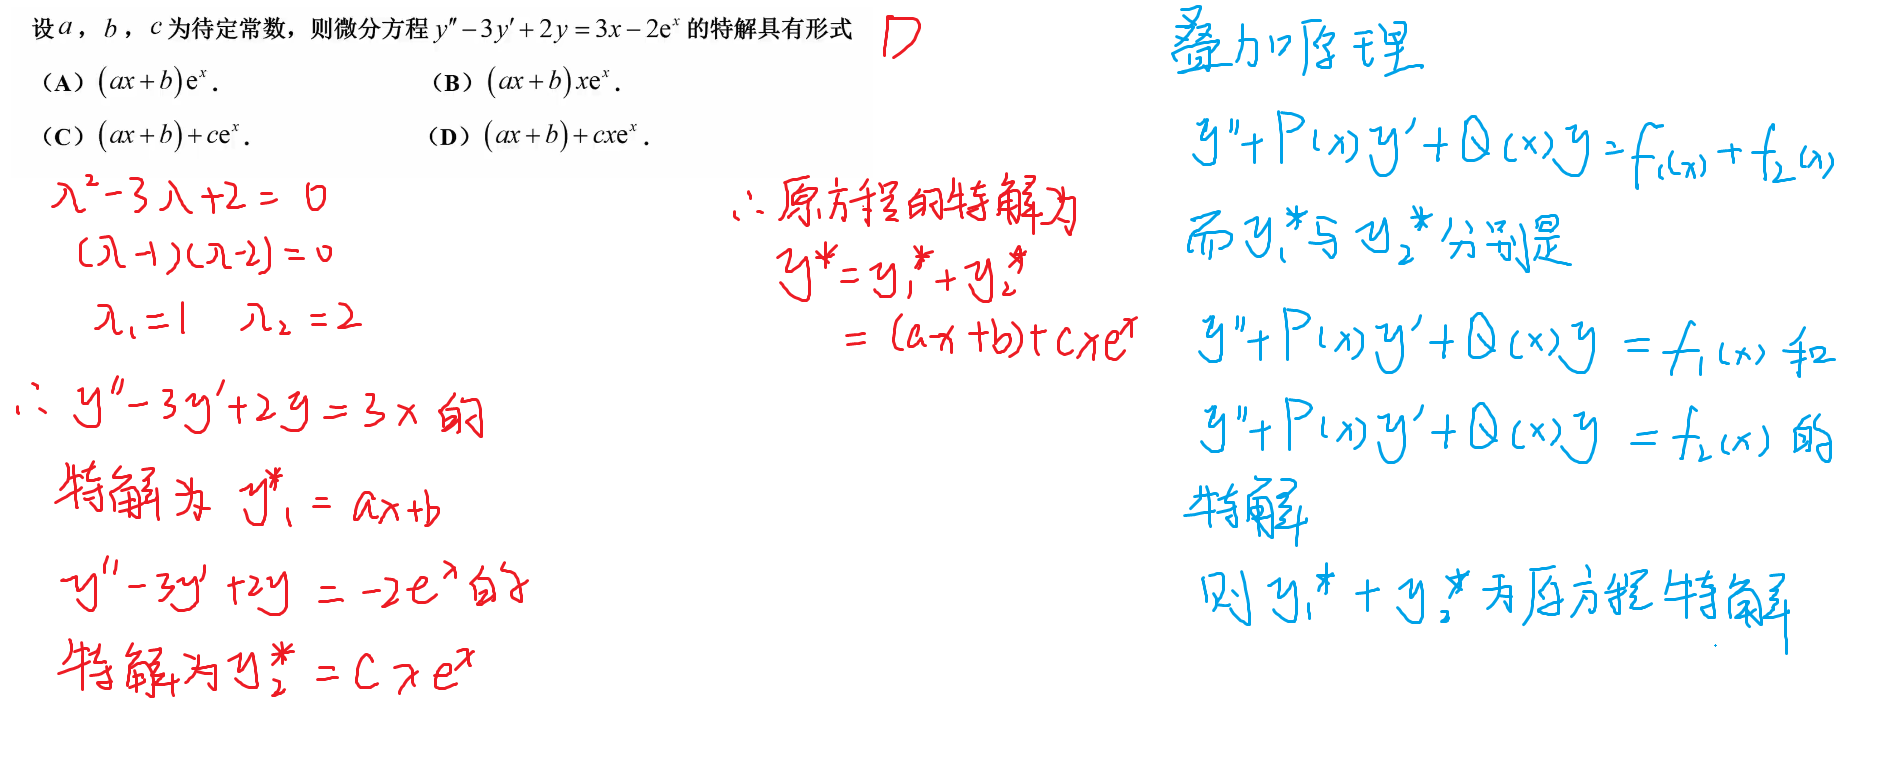 设a，b，c为待定常数，则微分方程y″−3y′+2y=3x−2eˣ的特解具有形式 D
（A）(ax+b)eˣ.
（B）(ax+b)xeˣ.
（C）(ax+b)+ceˣ.
（D）(ax+b)+cxeˣ.
λ²-3λ+2=0
(λ-1)(λ-2)=0
λ₁=1 λ₂=2
∴ y″-3y′+2y=3x的
特解为 y₁*=ax+b
y″-3y′+2y=-2eˣ的
特解为y₂*=Cxeˣ
∴原方程的特解为
y*=y₁*+y₂*
=(ax+b)+cxeˣ
叠加原理
y″+P(x)y′+Q(x)y=f₁(x)+f₂(x)
而y₁*与y₂*分别是
y″+P(x)y′+Q(x)y=f₁(x)和
y″+P(x)y′+Q(x)y=f₂(x)的
特解
则y₁*+y₂*为原方程特解